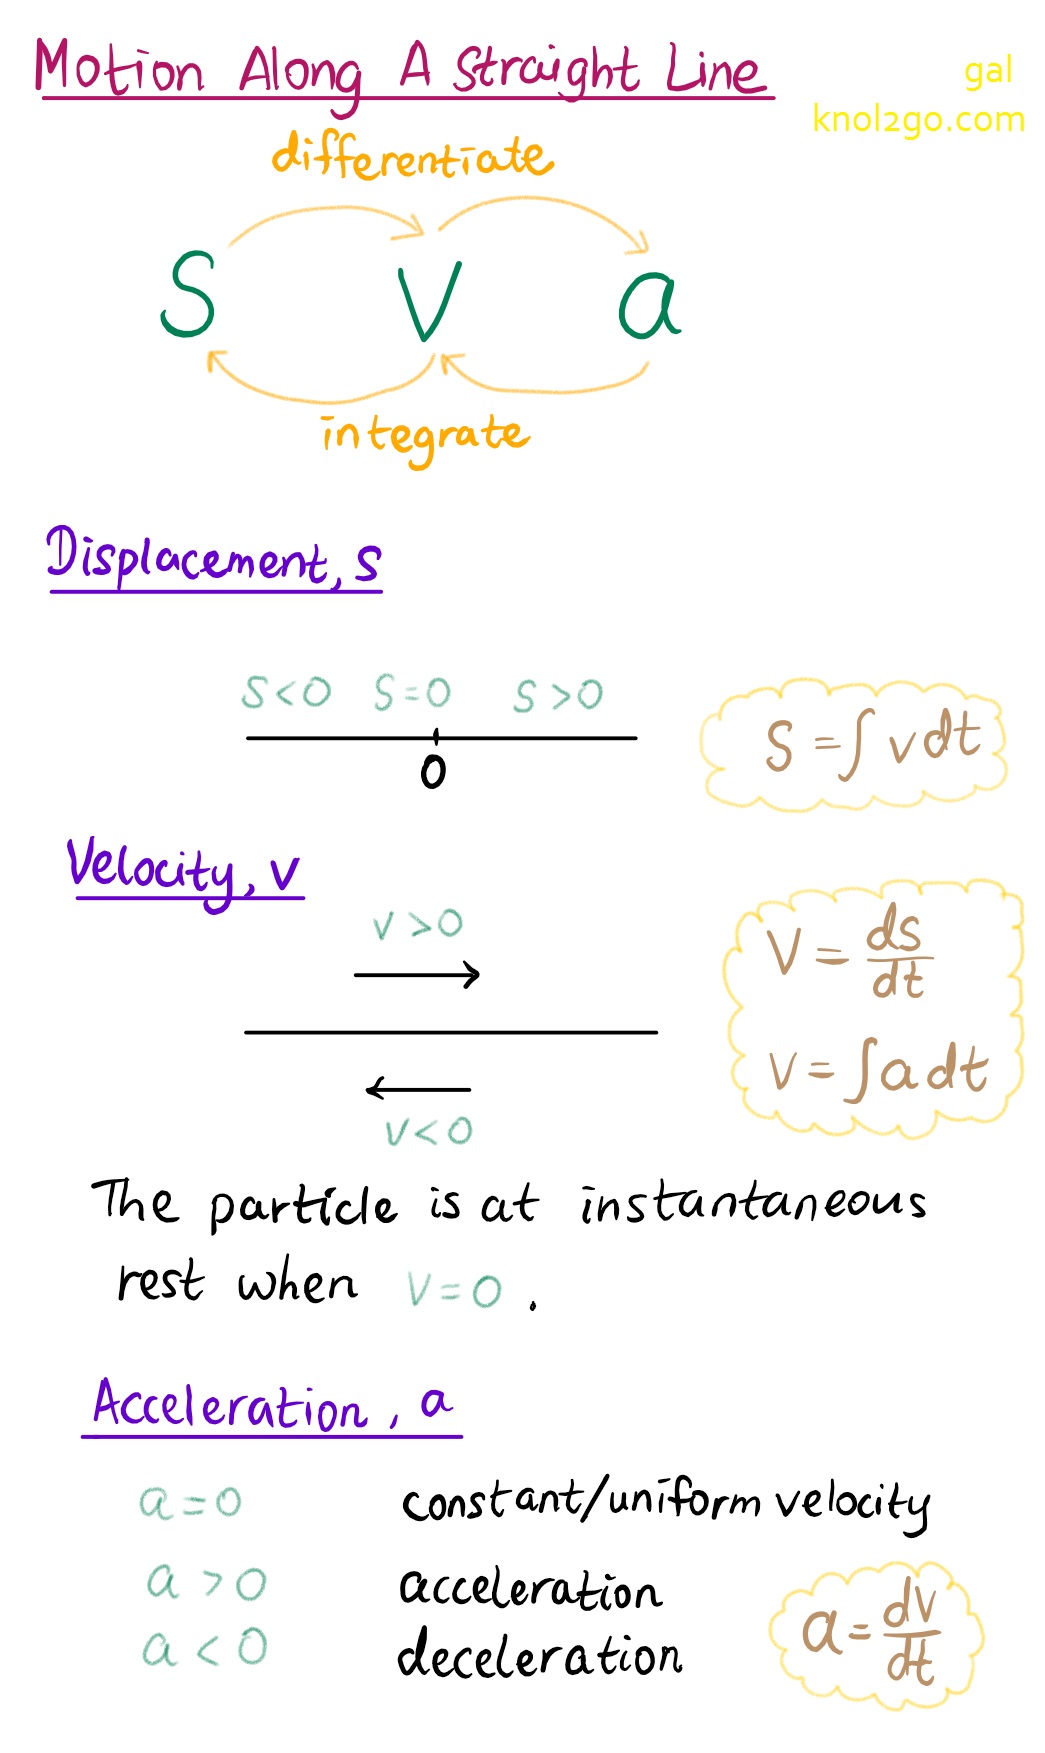 Motion Along A Straight Line
gal
knol2go.com
differentiate
S V a
integrate
Displacement, s
S<0 S=0 S>0
0
S = ∫ v dt
Velocity, v
v>0
v<0
V = ds/dt
v = ∫ a dt
The particle is at instantaneous
rest when v=0 .
Acceleration, a
a=0 constant/uniform velocity
a>0 acceleration
a<0 deceleration
a = dv/dt